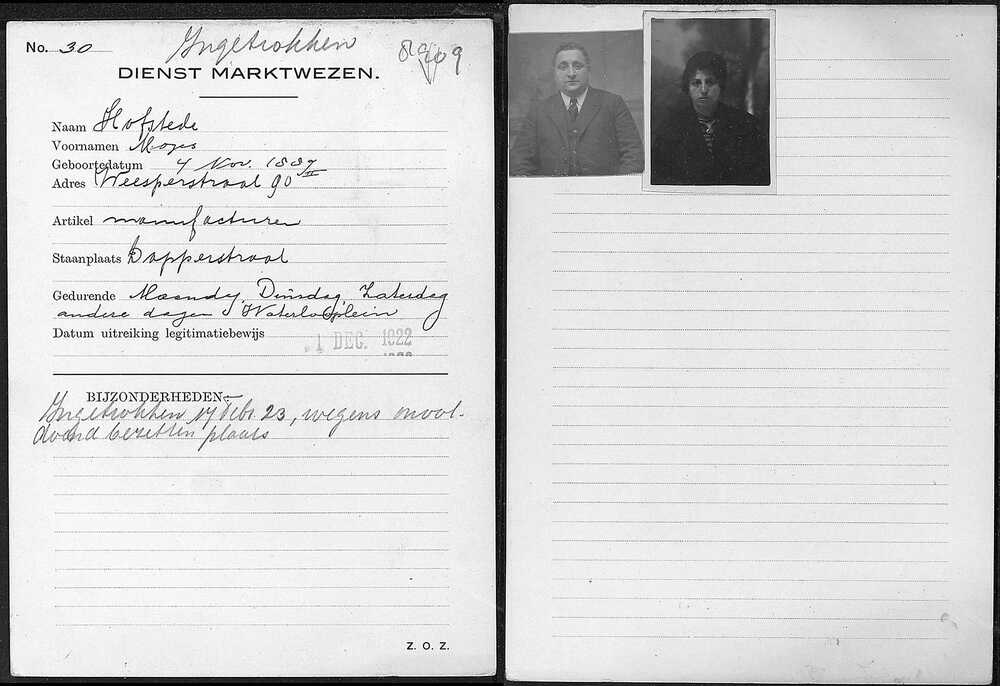 No. 30 Ingetrokken
DIENST MARKTWEZEN.
Naam Hofstede
Voornamen Mozes
Geboortedatum 4 Nov. 1887
Adres Weesperstraat 90 II
Artikel manufacturen
Staanplaats Dapperstraat
Gedurende Maandag, Dinsdag, Zaterdag
andere dagen Waterlooplein
Datum uitreiking legitimatiebewijs
1 DEC. 1922
BIJZONDERHEDEN:
Ingetrokken 17 Febr. 23, wegens onvol-
doend bezetten plaats
Z. O. Z.